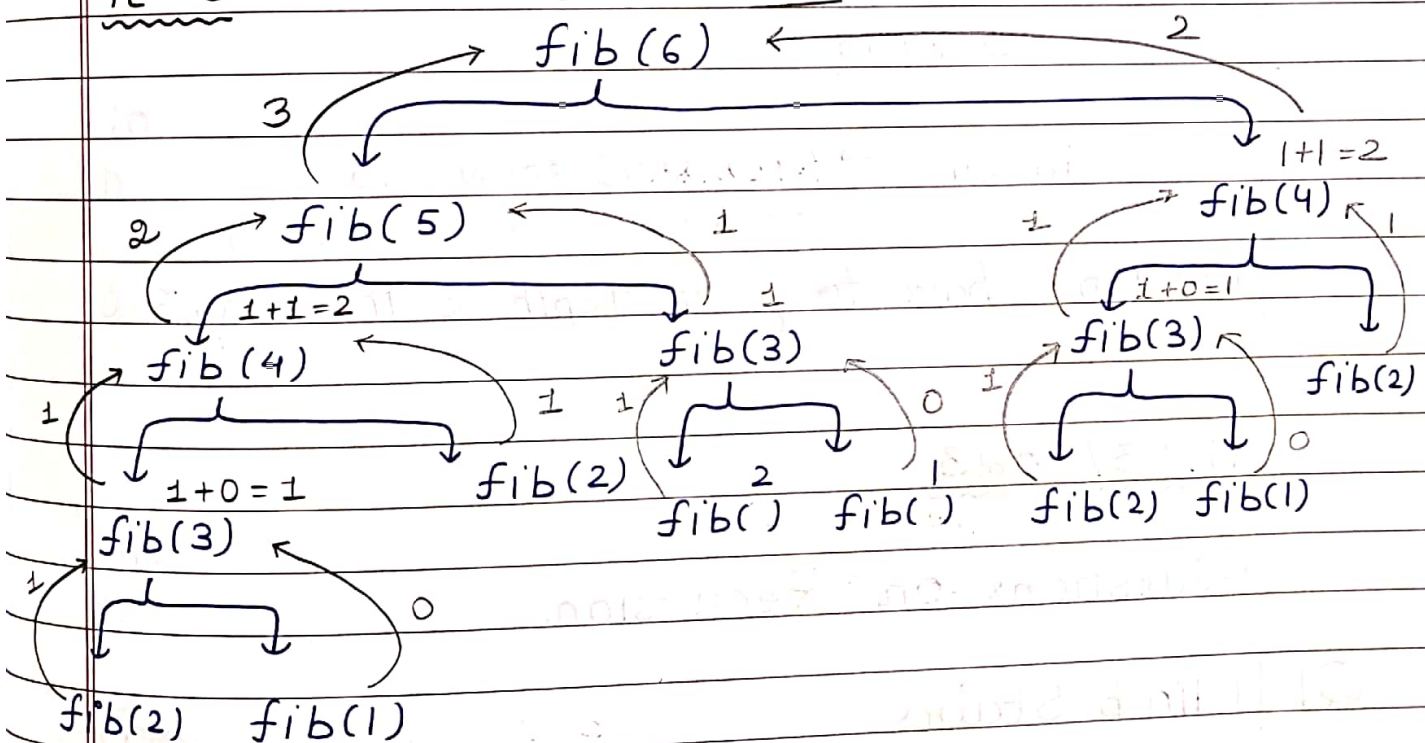 fib(6) 2
3
1+1=2
2 fib(5) 1 1 fib(4) 1
1+1=2 1 1+0=1
fib(4) fib(3) fib(3) fib(2)
1 1 1 0 1 0
1+0=1 fib(2) 2 1
fib(3) fib( ) fib( ) fib(2) fib(1)
1 0
fib(2) fib(1)